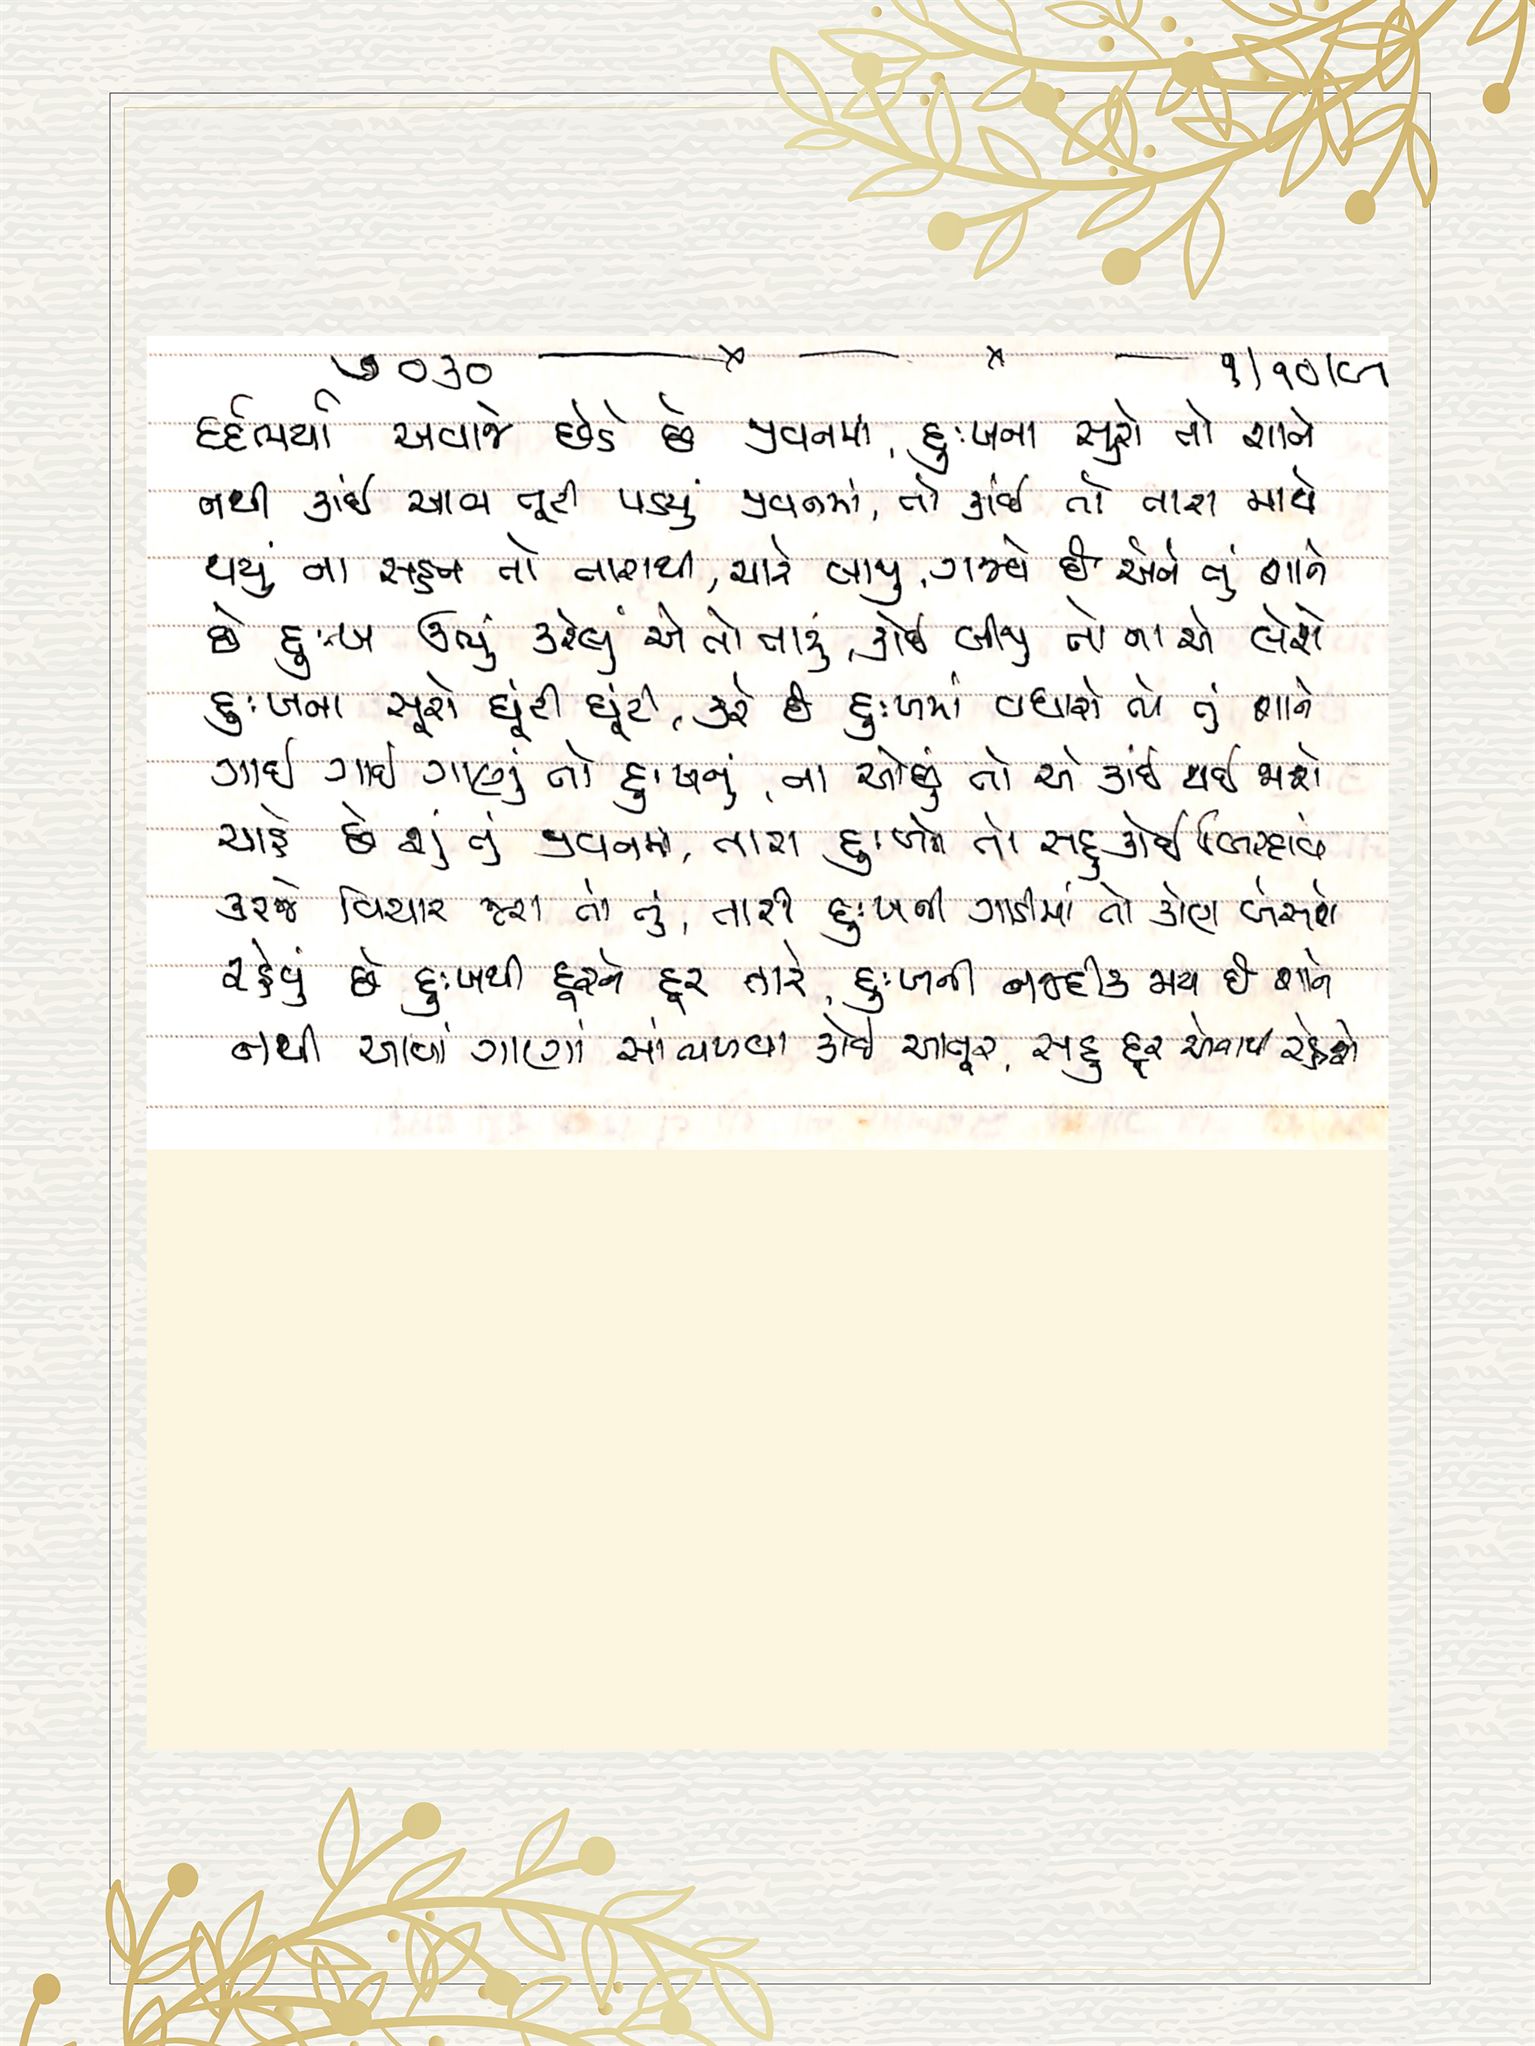 ૭૦૩૦ ——×—— × —— ૧/૧૦/૯૭
દર્દભર્યા અવાજે છેડે છે જીવનમાં, દુઃખના સુરો તો શાને
નથી કાંઈ આભ તૂટી પડયું જીવનમાં, તો કાંઈ તો તારા માથે
થયું ના સહન તો તારાથી, ચારે બાજુ, ગજવે છે એને તું શાને
છે દુઃખ ઊભું કરેલું એ તો તારું, કોઈ બીજુ તો ના એ લેશે
દુઃખના સૂરો ઘૂંટી ઘૂંટી, કરે છે દુઃખમાં વધારો તો તું શાને
ગાઈ ગાઈ ગાણું તો દુઃખનું, ના ઓછું તો એ કાંઈ થઈ જાશે
ચાહે છે શું તું જીવનમાં, તારા દુઃખને તો સહુ કોઈ બિરદાવે
કરજે વિચાર જરા તો તું, તારી દુઃખની ગાડીમાં તો કોણ બેસશે
રહેવું છે દુઃખથી દૂરને દૂર તારે, દુઃખની નજદીક જાય છે શાને
નથી આવાં ગાણાં સાંભળવા કોઈ આતુર, સહુ દૂર એનાથી રહેશે